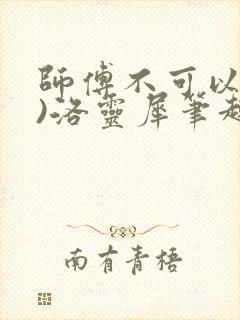 師傅不可以
)洛靈犀筆趣
南有青梧